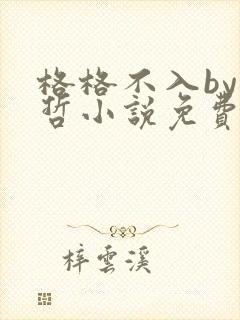 格格不入by
哲小說免費
梓雲溪